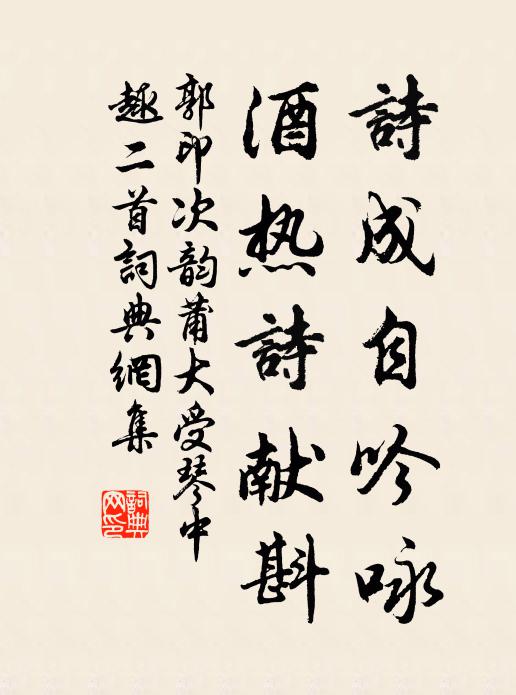 詩成自吟咏
酒热詩献斟
郭印次韵蒲大受琴中
趣二首詞典網集
詞典网印